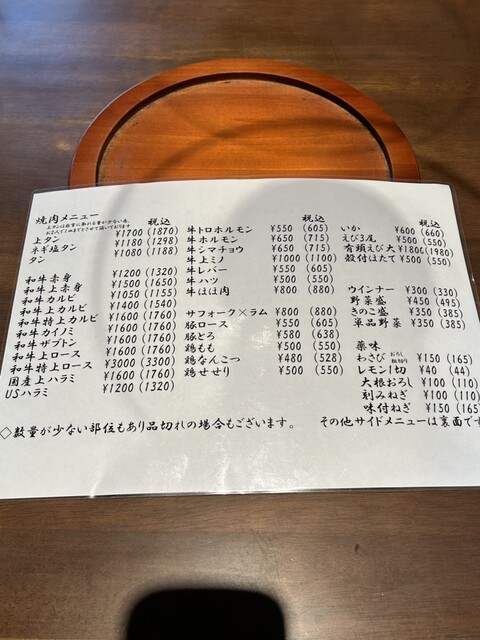 焼肉メニュー
上タンは非常に取れる量が少ない為、
お2人で1皿までとさせて頂いております
税込
上タン ¥1700 (1870)
ネギ塩タン ¥1180 (1298)
タン ¥1080 (1188)
和牛赤身 ¥1200 (1320)
和牛上赤身 ¥1500 (1650)
和牛カルビ ¥1050 (1155)
和牛上カルビ ¥1400 (1540)
和牛特上カルビ ¥1600 (1760)
和牛カイノミ ¥1600 (1760)
和牛ザブトン ¥1600 (1760)
和牛上ロース ¥1600 (1760)
和牛特上ロース ¥3000 (3300)
国産上ハラミ ¥1600 (1760)
USハラミ ¥1200 (1320)
税込
牛トロホルモン ¥550 (605)
牛ホルモン ¥650 (715)
牛シマチョウ ¥650 (715)
牛上ミノ ¥1000 (1100)
牛レバー ¥550 (605)
牛ハツ ¥500 (550)
牛ほほ肉 ¥800 (880)
サフォーク×ラム ¥800 (880)
豚ロース ¥550 (605)
豚とろ ¥580 (638)
鶏もも ¥500 (550)
鶏なんこつ ¥480 (528)
鶏せせり ¥500 (550)
税込
いか ¥600 (660)
えび3尾 ¥500 (550)
有頭えび大 ¥1800 (1980)
殻付ほたて ¥500 (550)
ウインナー ¥300 (330)
野菜盛 ¥450 (495)
きのこ盛 ¥350 (385)
単品野菜 ¥350 (385)
薬味
わさび おろし 粗切り ¥150 (165)
レモン1切 ¥40 (44)
大根おろし ¥100 (110)
刻みねぎ ¥100 (110)
味付ねぎ ¥150 (165)
◇数量が少ない部位もあり品切れの場合もございます。 その他サイドメニューは裏面です